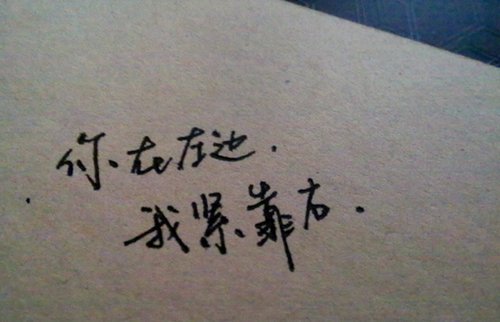 你在左边.
我紧靠右.